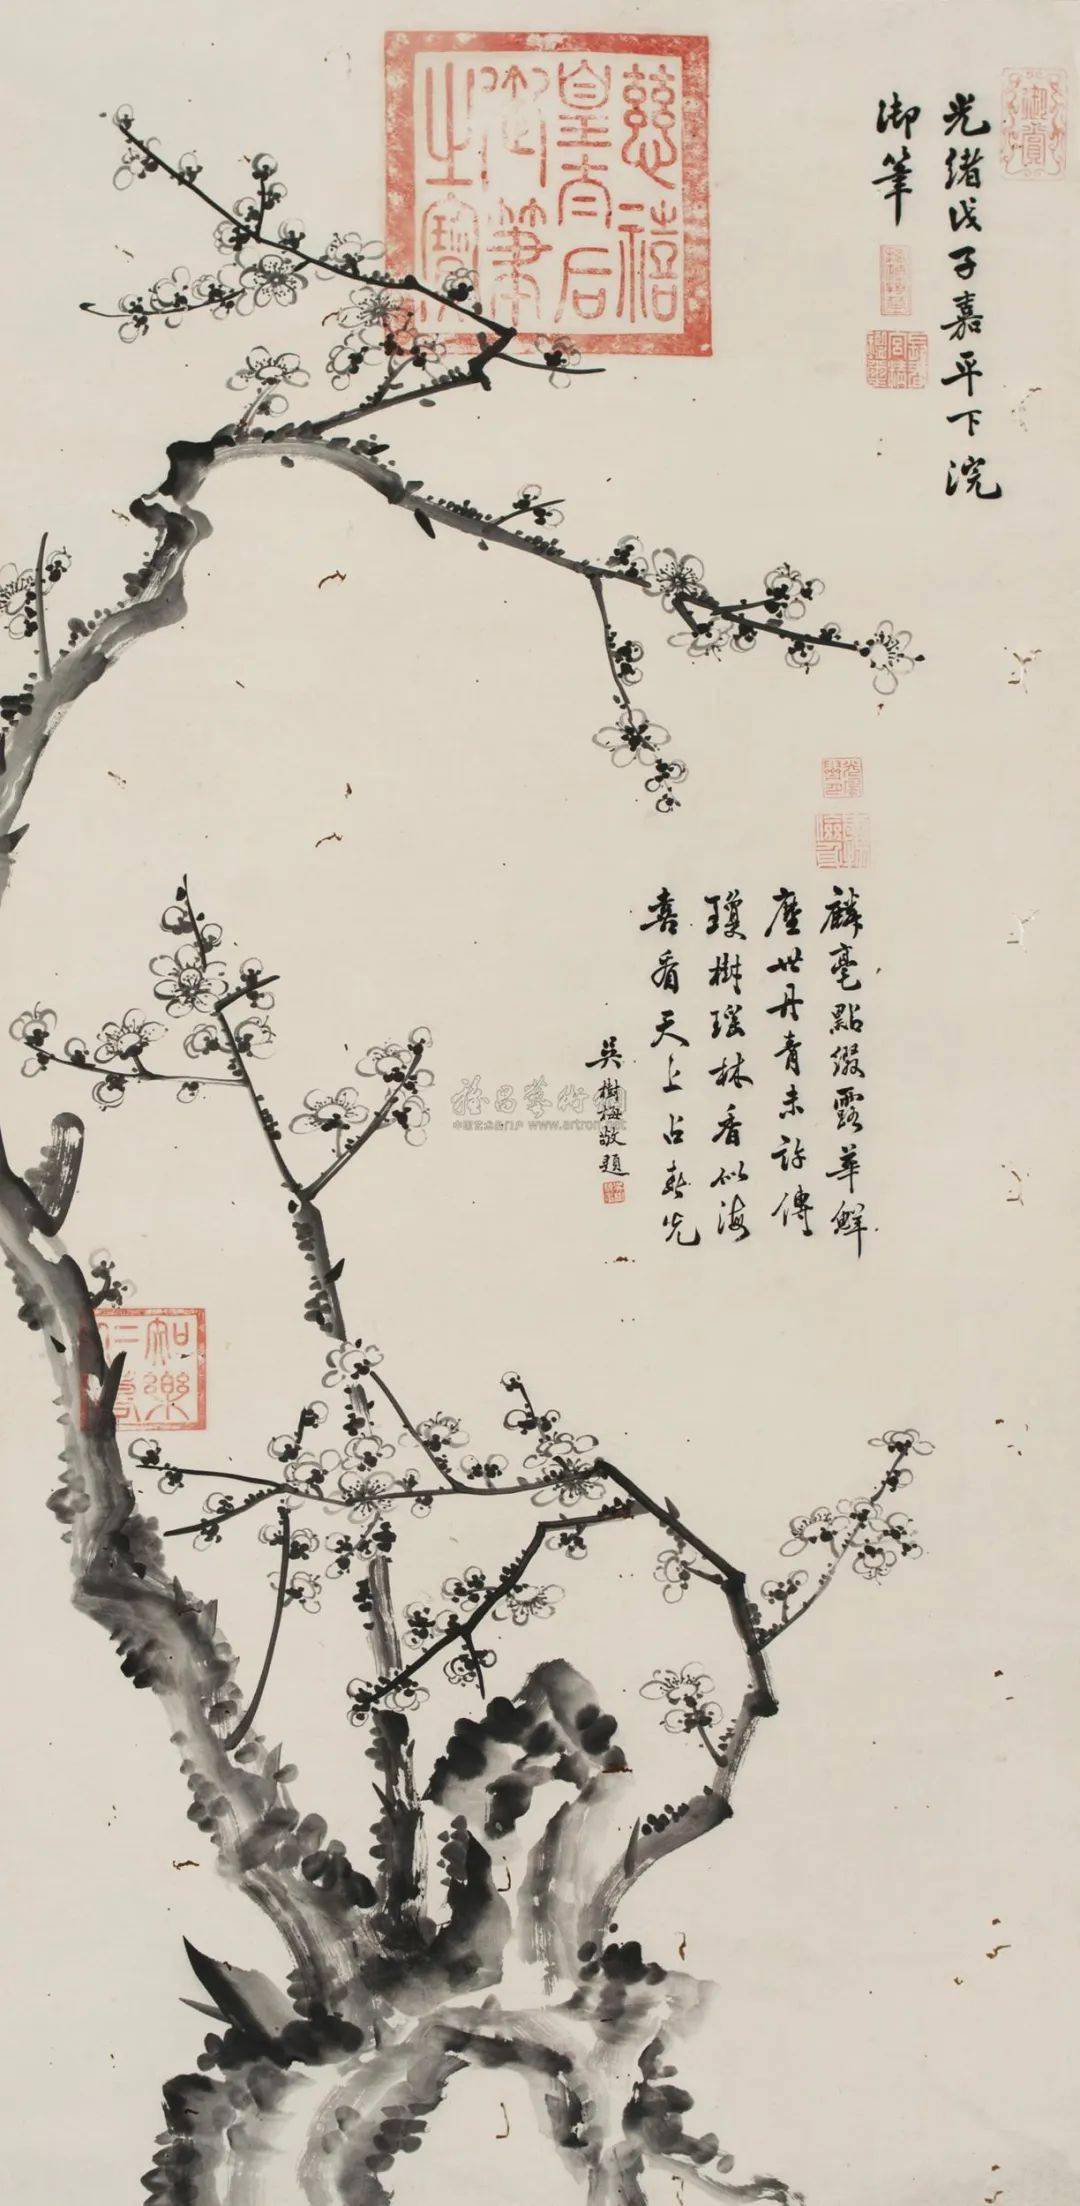 光緒戊子嘉平下浣
御筆
慈禧
皇太后
御筆
之寶
御賞
麟毫點綴露華鮮
塵世丹青未許傳
瓊樹瑤林香似海
喜看天上占春先
吳樹梅敬題
和樂
仁壽
雅昌藝術網
中国艺术品门户 www.artron.net